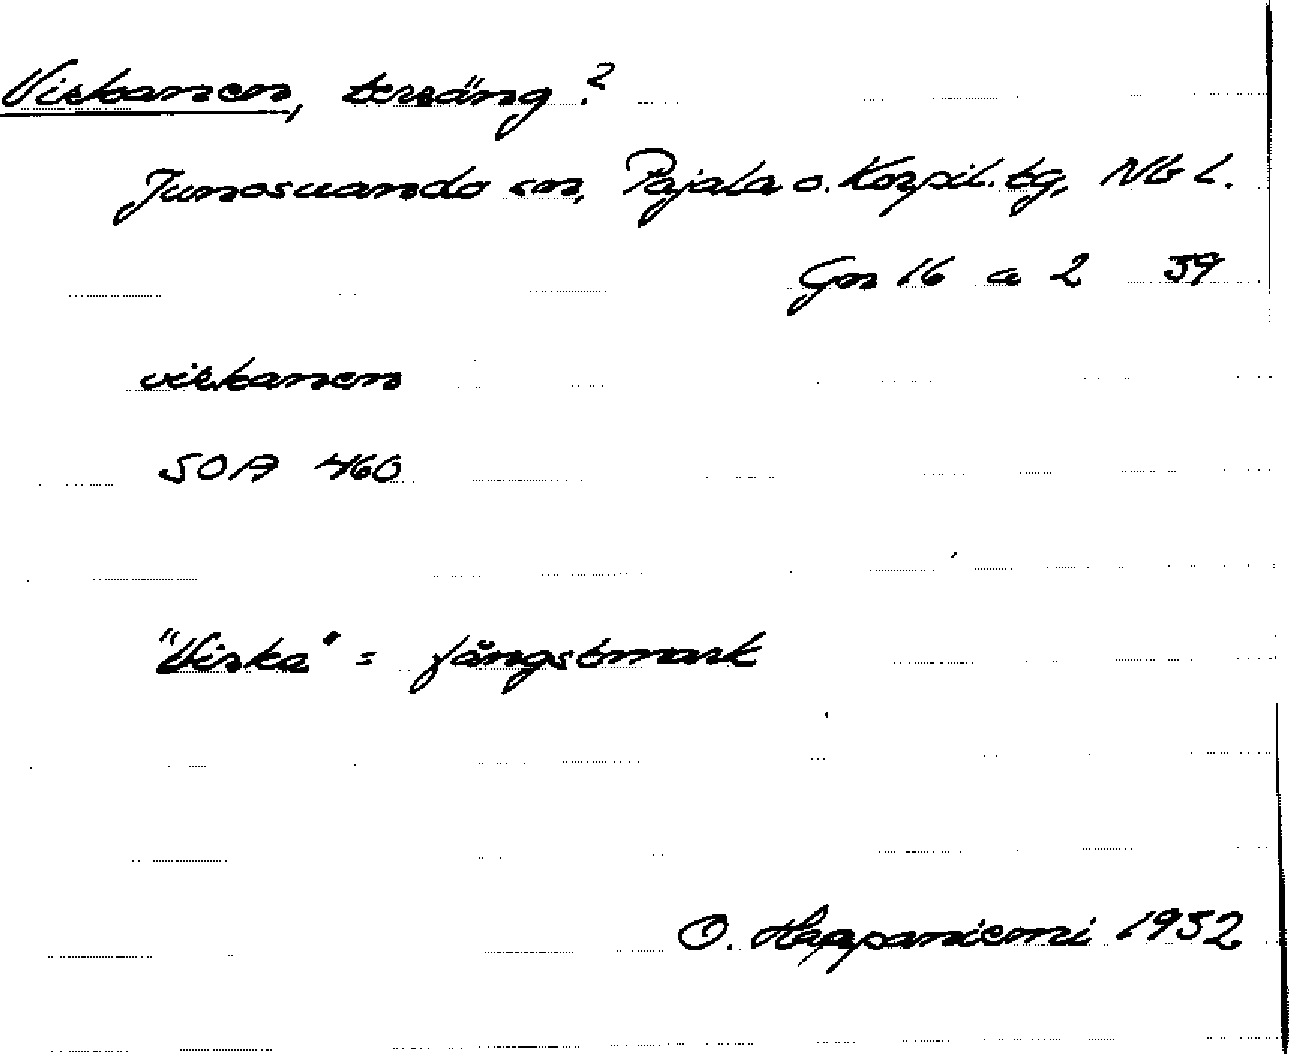 Viskanen, terräng?
Junosuando sn, Pajala o. Korpil. tg, Nb l.
Gn 16 a 2 39
viskanen
SOA 460
"Viska" = fångstmark
O. Happaniemi 1952